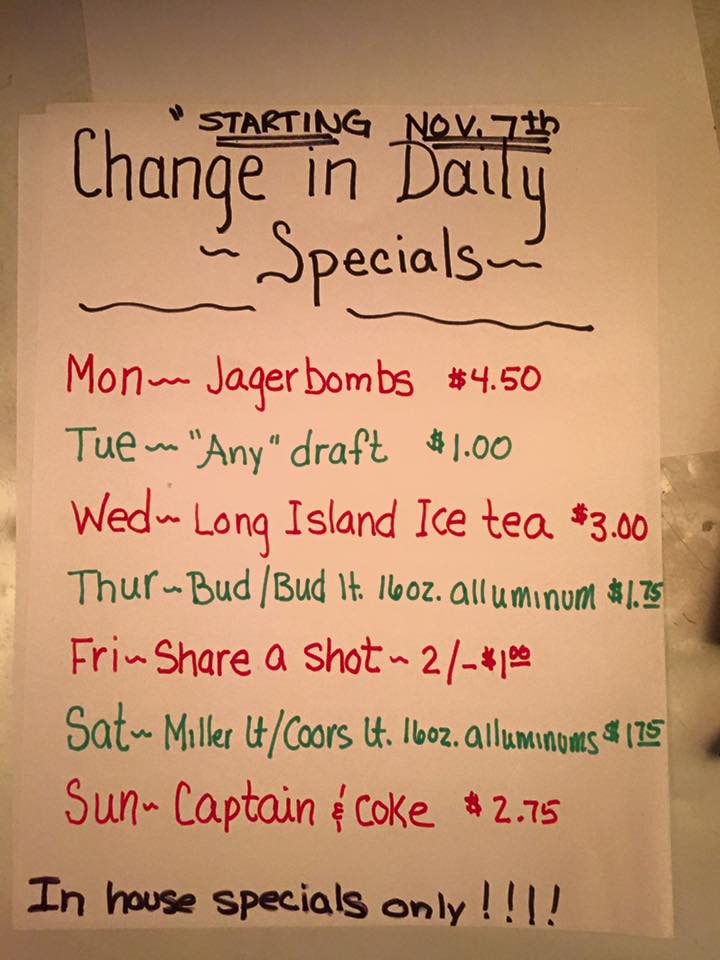 " STARTING NOV. 7th
Change in Daily
~ Specials ~
Mon~ Jagerbombs $4.50
Tue~ "Any" draft $1.00
Wed~ Long Island Ice tea $3.00
Thur~Bud/Bud lt. 16oz. alluminum $1.75
Fri~Share a shot~ 2/-$1.00
Sat~ Miller lt/Coors lt. 16oz. alluminums $1 75
Sun~ Captain & Coke $2.75
In house specials only !!!!